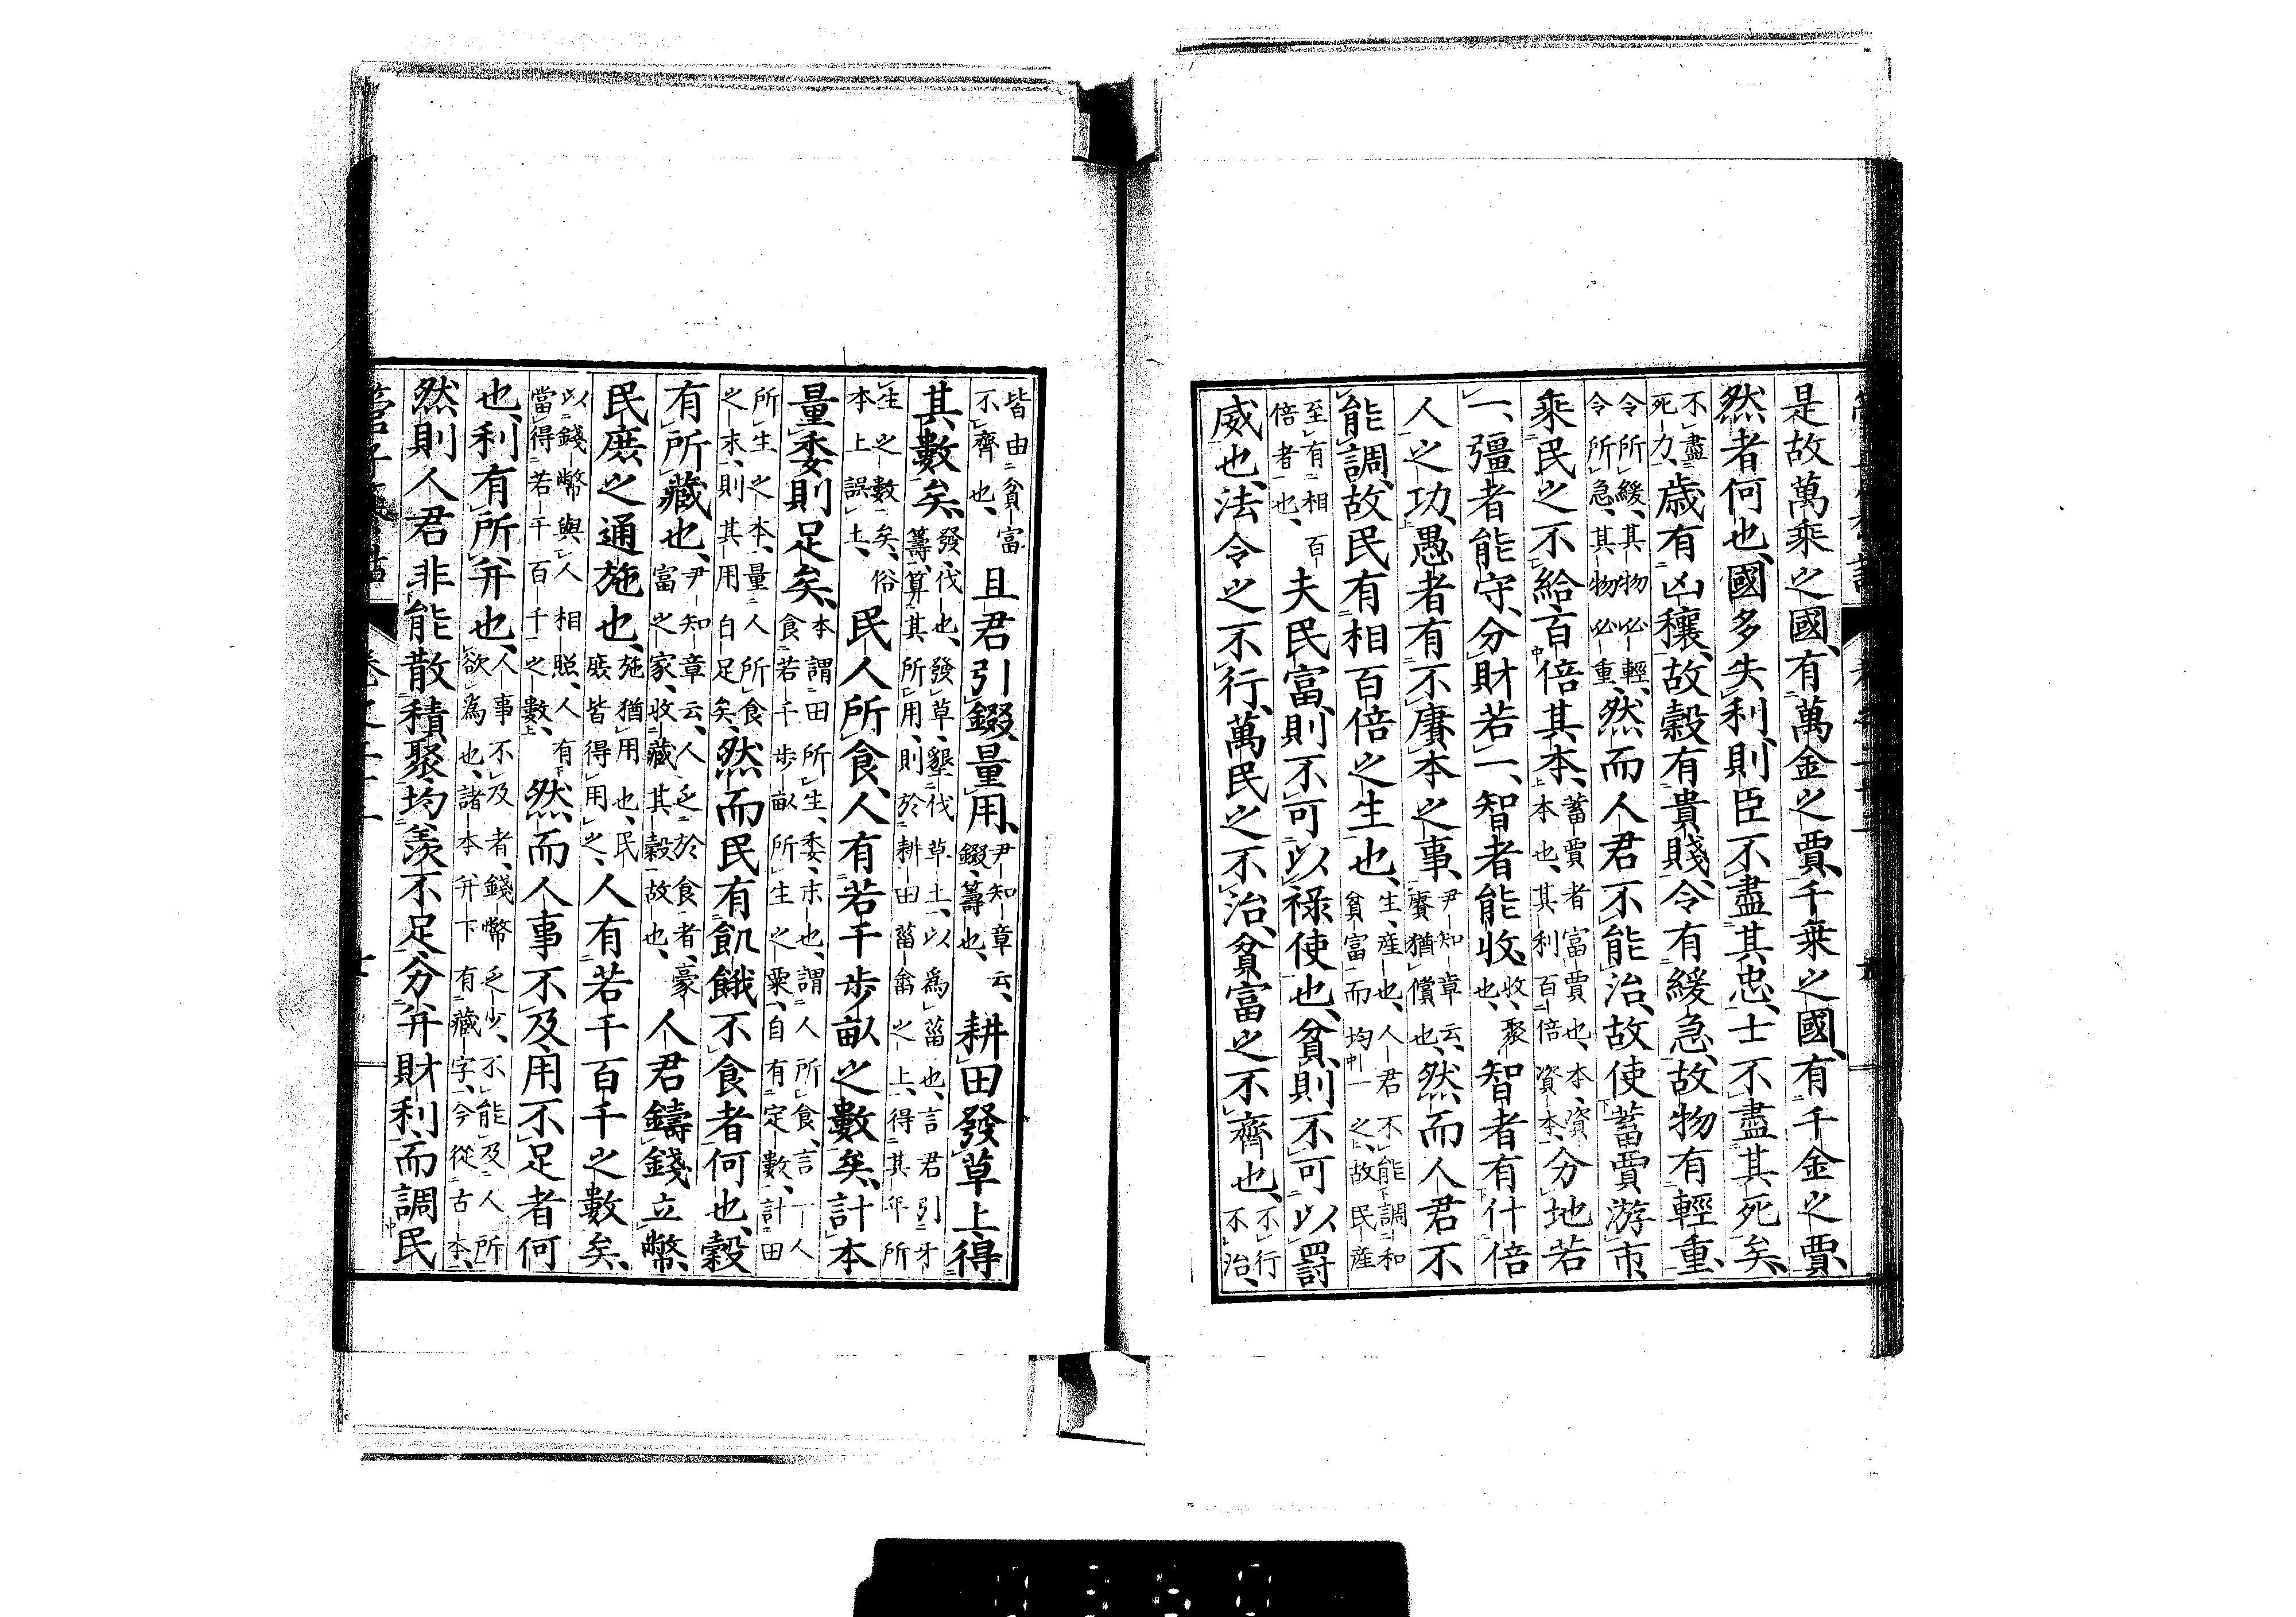 是故萬乘之國、有萬金之賈、千乘之國、有千金之賈、
然者何也、國多失利、則臣不盡其忠、士不盡其死矣、
不盡死力、歳有凶穰、故穀有貴賤、令有緩急、故物有輕重、
令所緩、其物必輕、令所急、其物必重、然而人君不能治、故使蓄賈游市、
乘民之不給、百倍其本、蓄賈者富賈也、本、資本也、其利百倍資本、分地若
一、彊者能守、分財若一、智者能收、收、聚也、智者有什倍
人之功、愚者有不賡本之事、尹知章云、賡猶償也、然而人君不
能調、故民有相百倍之生也、生、産也、人君不能調和貧富而均一之、故民産
至有相百倍者也、夫民富、則不可以祿使也、貧、則不可以罰
威也、法令之不行、萬民之不治、貧富之不齊也、不行不治、
皆由貧富不齊也、且君引錣量用、尹知章云、錣、籌也、耕田發草、上得
其數矣、發、伐也、發草、墾伐草土、以爲菑也、言君引牙籌、算其所用、則於耕田菑畬之上、得其年所
生之數矣、俗本上誤土、民人所食、人有若干步畝之數矣、計本
量委則足矣、本謂田所生、委、末也、謂人所食、言一人食若干步畝所生之粟、自有定數、計田
所生之本、量人所食之末、則其用自足矣、然而民有飢餓不食者何也、穀
有所藏也、尹知章云、人乏於食者、豪富之家、收藏其穀故也、人君鑄錢立幣、
民庶之通施也、施猶用也、民庶皆得用之、人有若干百千之數矣、
以錢幣與人相照、人有當得若干百千之數、然而人事不及、用不足者何
也、利有所幷也、人事不及者、錢幣乏少、不能及人所欲爲也、諸本幷下有藏字、今從古本、
然則人君非能散積聚、均羨不足、分幷財利、而調民